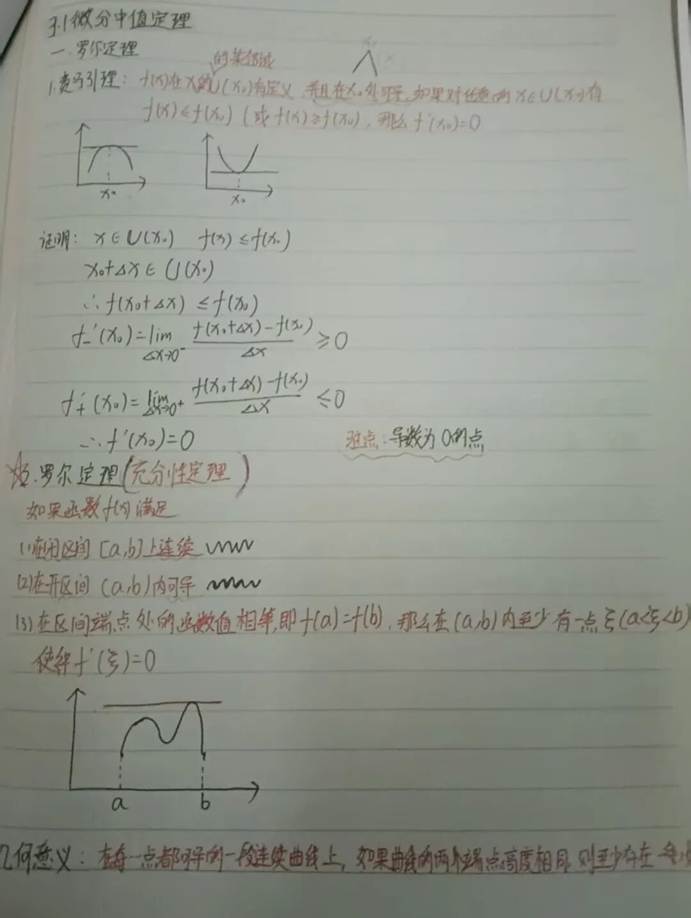 3.1微分中值定理
一.罗尔定理
的某邻域
1.费马引理: f(x)在x的U(x₀)有定义,并且在x₀处可导,如果对任意的x∈U(x₀)有
f(x)≤f(x₀) (或f(x)≥f(x₀), 那么f'(x₀)=0
x₀ x₀
证明: x∈U(x₀) f(x)≤f(x₀)
x₀+Δx∈U(x₀)
∴f(x₀+Δx)≤f(x₀)
f₋'(x₀)=lim Δx→0⁻ (f(x₀+Δx)-f(x₀))/Δx ≥0
f₊'(x₀)=lim Δx→0⁺ (f(x₀+Δx)-f(x₀))/Δx ≤0
∴f'(x₀)=0
驻点:导数为0的点
2.罗尔定理(充分性定理)
如果函数f(x)满足
(1)在闭区间[a,b]上连续
(2)在开区间(a,b)内可导
(3)在区间端点处的函数值相等,即f(a)=f(b),那么在(a,b)内至少有一点ξ(a<ξ<b)
使得f'(ξ)=0
a b
几何意义:在每一点都可导的一段连续曲线上,如果曲线的两个端点高度相同,则至少存在一